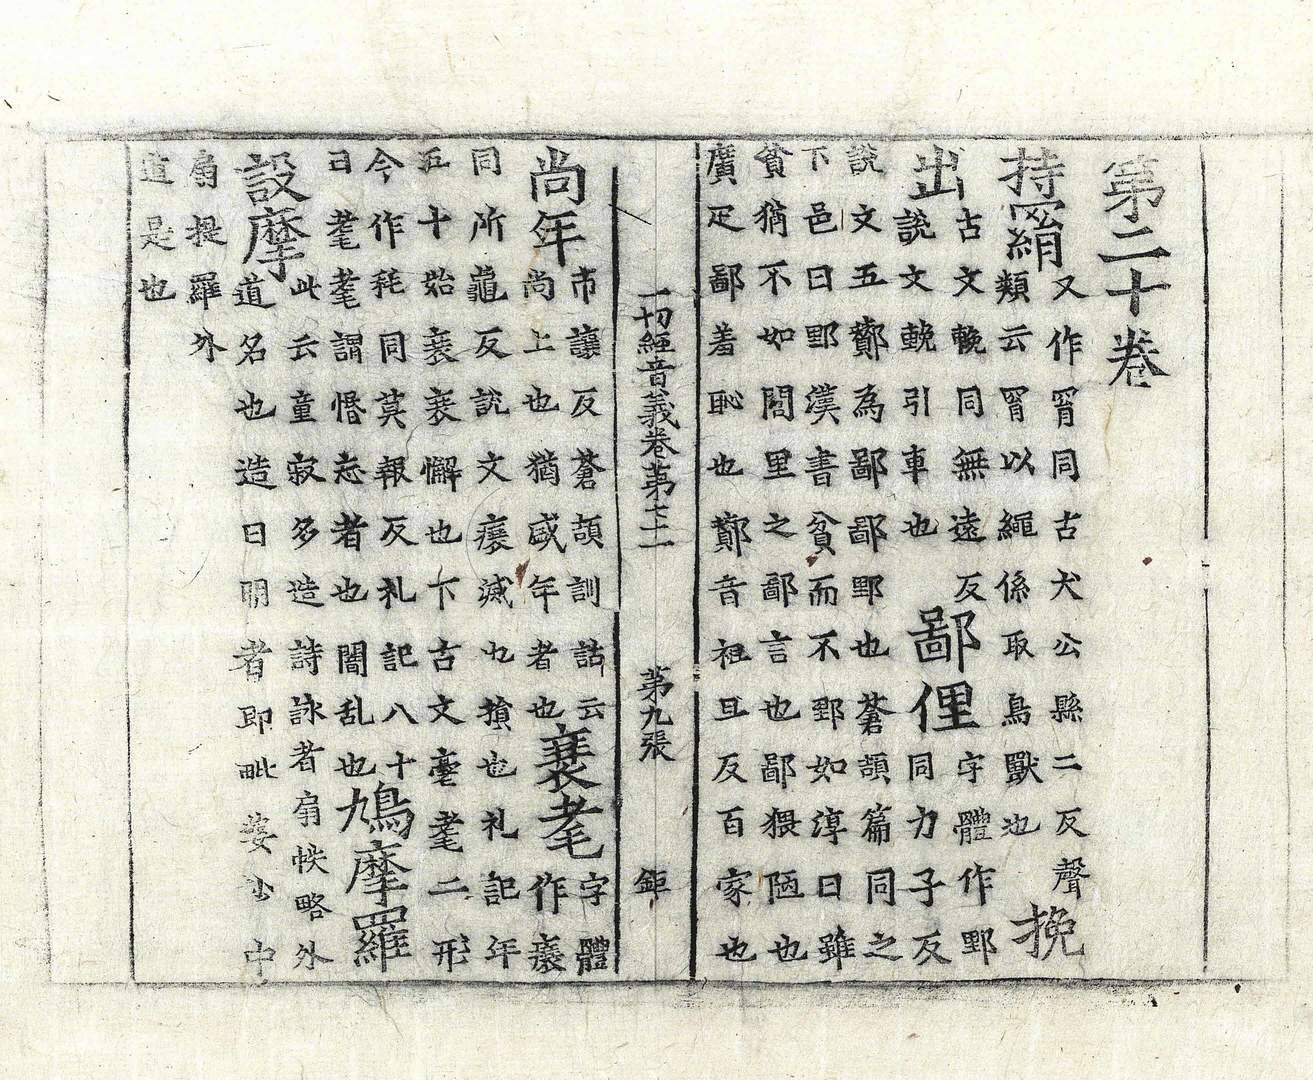 第二十卷
持羂又作罥同古犬公縣二反聲類云罥以繩係取鳥獸也挽
出古文輓同無遠反說文輓引車也鄙俚字體作野同力子反
說文五酇為鄙鄙野也蒼頡篇同之
下邑曰野漢書貧而不野如淳曰雖
貧猶不如閭里之鄙言也鄙猥陋也
廣疋鄙羞恥也酇音祖旦反百家也
一切經音義卷第十二 第九張 鉅
尚年市讓反蒼頡訓詁云尚上也猶盛年者也衰耄字體作㾽
同所龜反說文㾽減也損也礼記年
五十始衰衰懈也下古文耄耄二形
今作秏同莫報反礼記八十曰耄耄謂惛忘者也闇乱也鳩摩羅
設摩此云童寂多造詩詠者扇帙略外道名也造日明者即毗婆沙中
扇提羅外
道是也